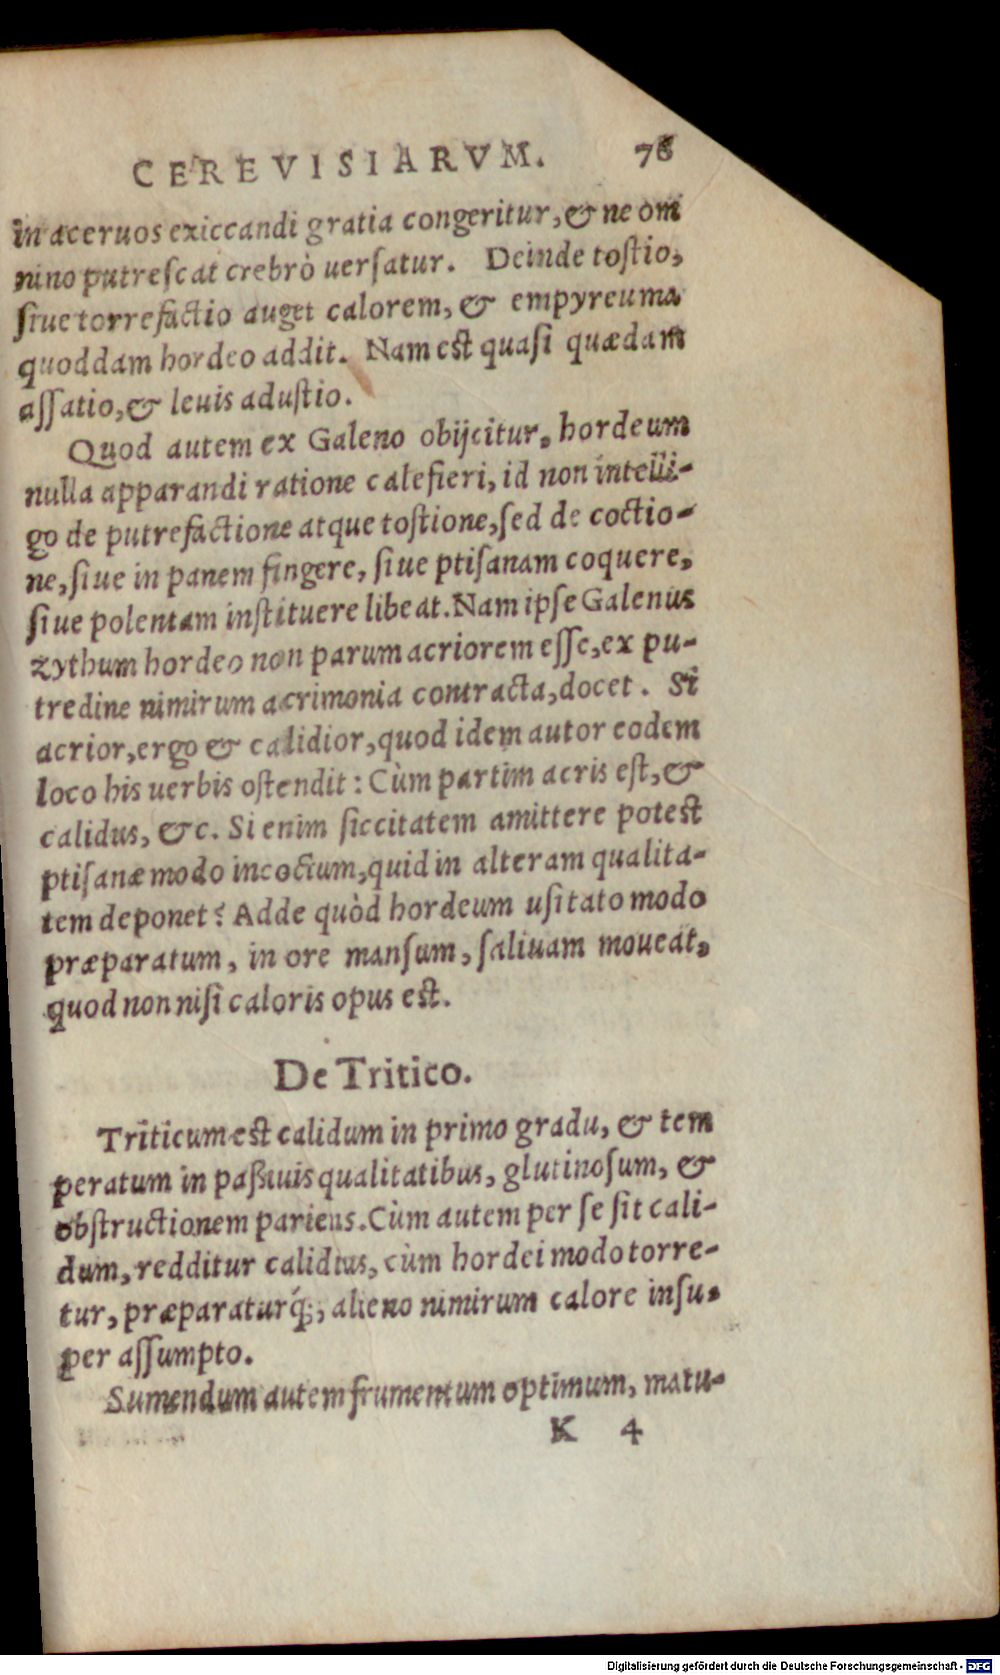 CEREVISIARVM. 76
in aceruos exiccandi gratia congeritur, & ne om
nino putrescat crebrò uersatur. Deinde tostio,
siue torrefactio auget calorem, & empyreuma
quoddam hordeo addit. Nam est quasi quædam
assatio, & leuis adustio.
Quod autem ex Galeno obijcitur, hordeum
nulla apparandi ratione calefieri, id non intelli-
go de putrefactione atque tostione, sed de coctio-
ne, siue in panem fingere, siue ptisanam coquere,
siue polentam instituere libeat. Nam ipse Galenus
zythum hordeo non parum acriorem esse, ex pu-
tredine nimirum acrimonia contracta, docet. Si
acrior, ergo & calidior, quod idem autor eodem
loco his uerbis ostendit: Cùm partim acris est, &
calidus, &c. Si enim siccitatem amittere potest
ptisanæ modo incoctum, quid in alteram qualita-
tem deponet? Adde quòd hordeum usitato modo
præparatum, in ore mansum, saliuam moueat,
quod non nisi caloris opus est.
De Tritico.
Triticum est calidum in primo gradu, & tem
peratum in paßiuis qualitatibus, glutinosum, &
obstructionem pariens. Cùm autem per se sit cali-
dum, redditur calidius, cùm hordei modo torre-
tur, præparaturq́;, alieno nimirum calore insu-
per assumpto.
Sumendum autem frumentum optimum, matu-
K 4
Digitalisierung gefördert durch die Deutsche Forschungsgemeinschaft - DFG